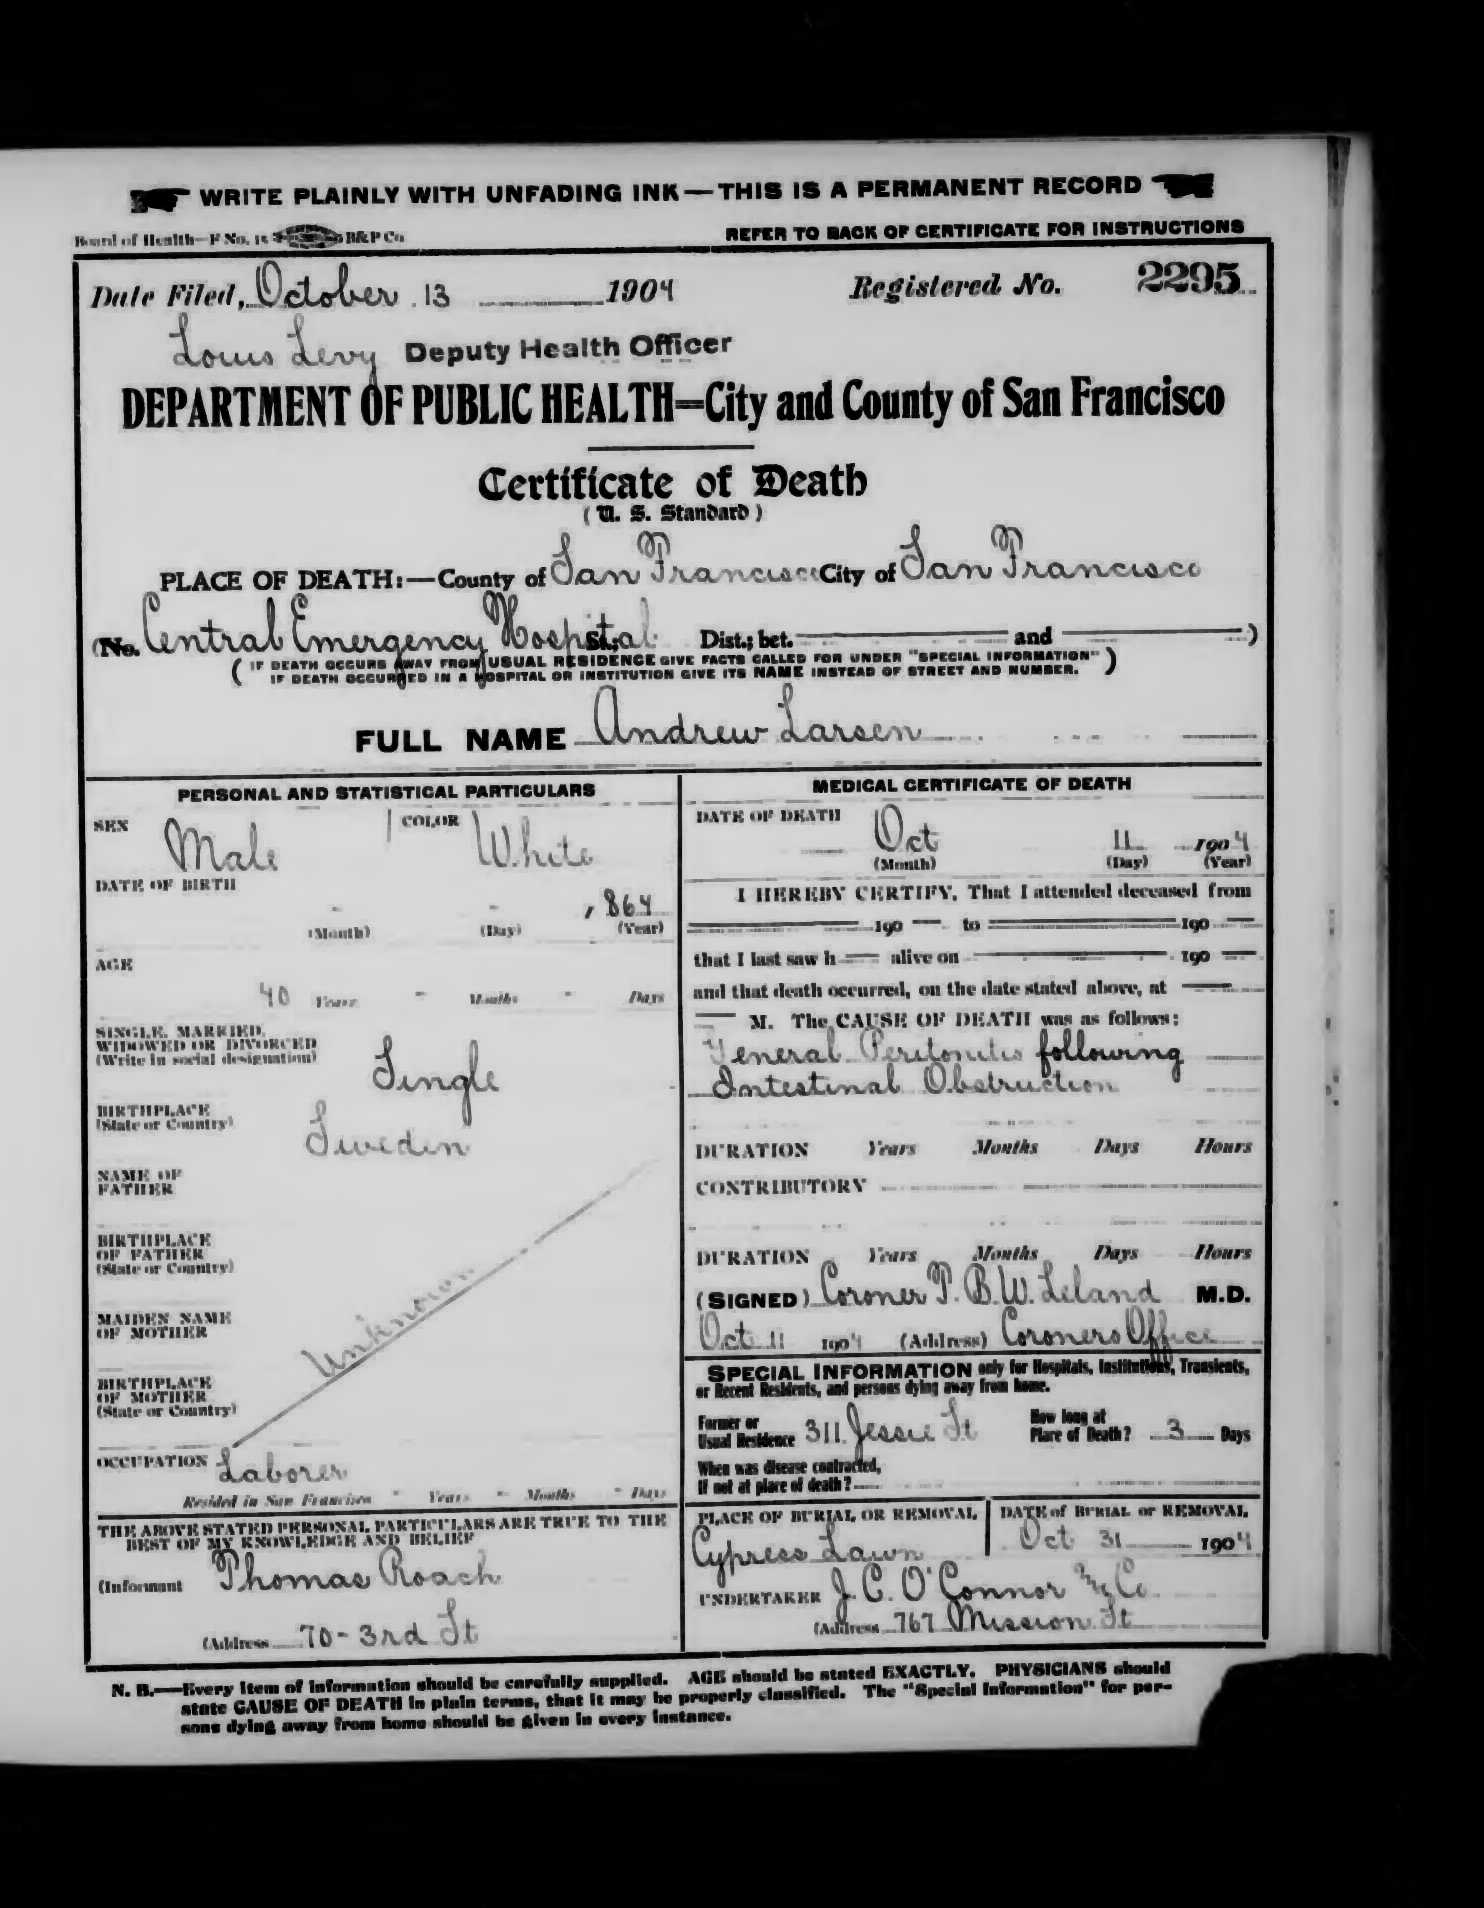 WRITE PLAINLY WITH UNFADING INK—THIS IS A PERMANENT RECORD
Board of Health—F No. 15 B&P Co
REFER TO BACK OF CERTIFICATE FOR INSTRUCTIONS
Date Filed, October 13 1904 Registered No. 2295
Louis Levy Deputy Health Officer
DEPARTMENT OF PUBLIC HEALTH=City and County of San Francisco
Certificate of Death
(U. S. Standard)
PLACE OF DEATH:—County of San Francisco City of San Francisco
(No. Central Emergency Hospital St.; Dist.; bet. and )
( IF DEATH OCCURS AWAY FROM USUAL RESIDENCE GIVE FACTS CALLED FOR UNDER "SPECIAL INFORMATION" )
IF DEATH OCCURRED IN A HOSPITAL OR INSTITUTION GIVE ITS NAME INSTEAD OF STREET AND NUMBER.
FULL NAME Andrew Larsen
PERSONAL AND STATISTICAL PARTICULARS
SEX Male COLOR White
DATE OF BIRTH
- - , 864
(Month) (Day) (Year)
AGE
40 Years - Months - Days
SINGLE, MARRIED,
WIDOWED OR DIVORCED
(Write in social designation) Single
BIRTHPLACE
(State or Country) Sweden
NAME OF
FATHER
BIRTHPLACE
OF FATHER
(State or Country)
MAIDEN NAME
OF MOTHER
Unknown
BIRTHPLACE
OF MOTHER
(State or Country)
OCCUPATION Laborer
Resided in San Francisco - Years - Months - Days
THE ABOVE STATED PERSONAL PARTICULARS ARE TRUE TO THE
BEST OF MY KNOWLEDGE AND BELIEF
(Informant Thomas Roach
(Address 70-3rd St
MEDICAL CERTIFICATE OF DEATH
DATE OF DEATH
Oct 11 1904
(Month) (Day) (Year)
I HEREBY CERTIFY, That I attended deceased from
190 to 190
that I last saw h alive on 190
and that death occurred, on the date stated above, at
M. The CAUSE OF DEATH was as follows:
General Peritonitis following
Intestinal Obstruction
DURATION Years Months Days Hours
CONTRIBUTORY
DURATION Years Months Days Hours
(SIGNED) Coroner T. B. W. Leland M.D.
Oct 11 1904 (Address) Coroners Office
SPECIAL INFORMATION only for Hospitals, Institutions, Transients,
or Recent Residents, and persons dying away from home.
Former or
Usual Residence 311 Jessie St
How long at
Place of Death? 3 Days
When was disease contracted,
If not at place of death?
PLACE OF BURIAL OR REMOVAL
Cypress Lawn
DATE of BURIAL or REMOVAL
Oct 31 1904
UNDERTAKER J. C. O'Connor & Co.
(Address 767 Mission St
N. B.—Every item of information should be carefully supplied. AGE should be stated EXACTLY. PHYSICIANS should
state CAUSE OF DEATH in plain terms, that it may be properly classified. The "Special Information" for per-
sons dying away from home should be given in every instance.